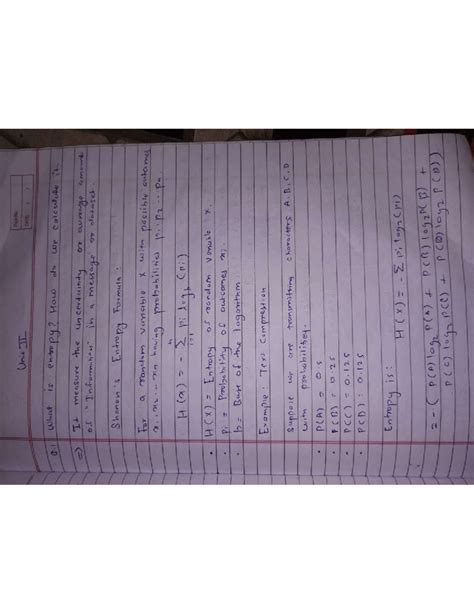 Unit III
Q.1 What is entropy? How do we calculate it.
⇒ It measure the uncertainity or average amount
of "Information" in a message or dataset
Shanon's Entropy Formula:
For a random variable X with possible outcomes
x₁, x₂ ... xn having probabilities p₁, p₂ ... pn.
H(X) = - Σ pi log_b (pi)
• H(X) = Entropy of random variable X.
• pi = Probability of outcomes xi.
• b = Base of the logarithm
Example: Text Compression
Suppose we are transmitting characters A, B, C, D
with probabilities.
• P(A) = 0.5
• P(B) = 0.25
• P(C) = 0.125
• P(D) = 0.125
Entropy is:
H(X) = - Σ pi log₂ (pi)
= - ( P(A) log₂ P(A) + P(B) log₂ P(B) +
P(C) log₂ P(C) + P(D) log₂ P(D) )